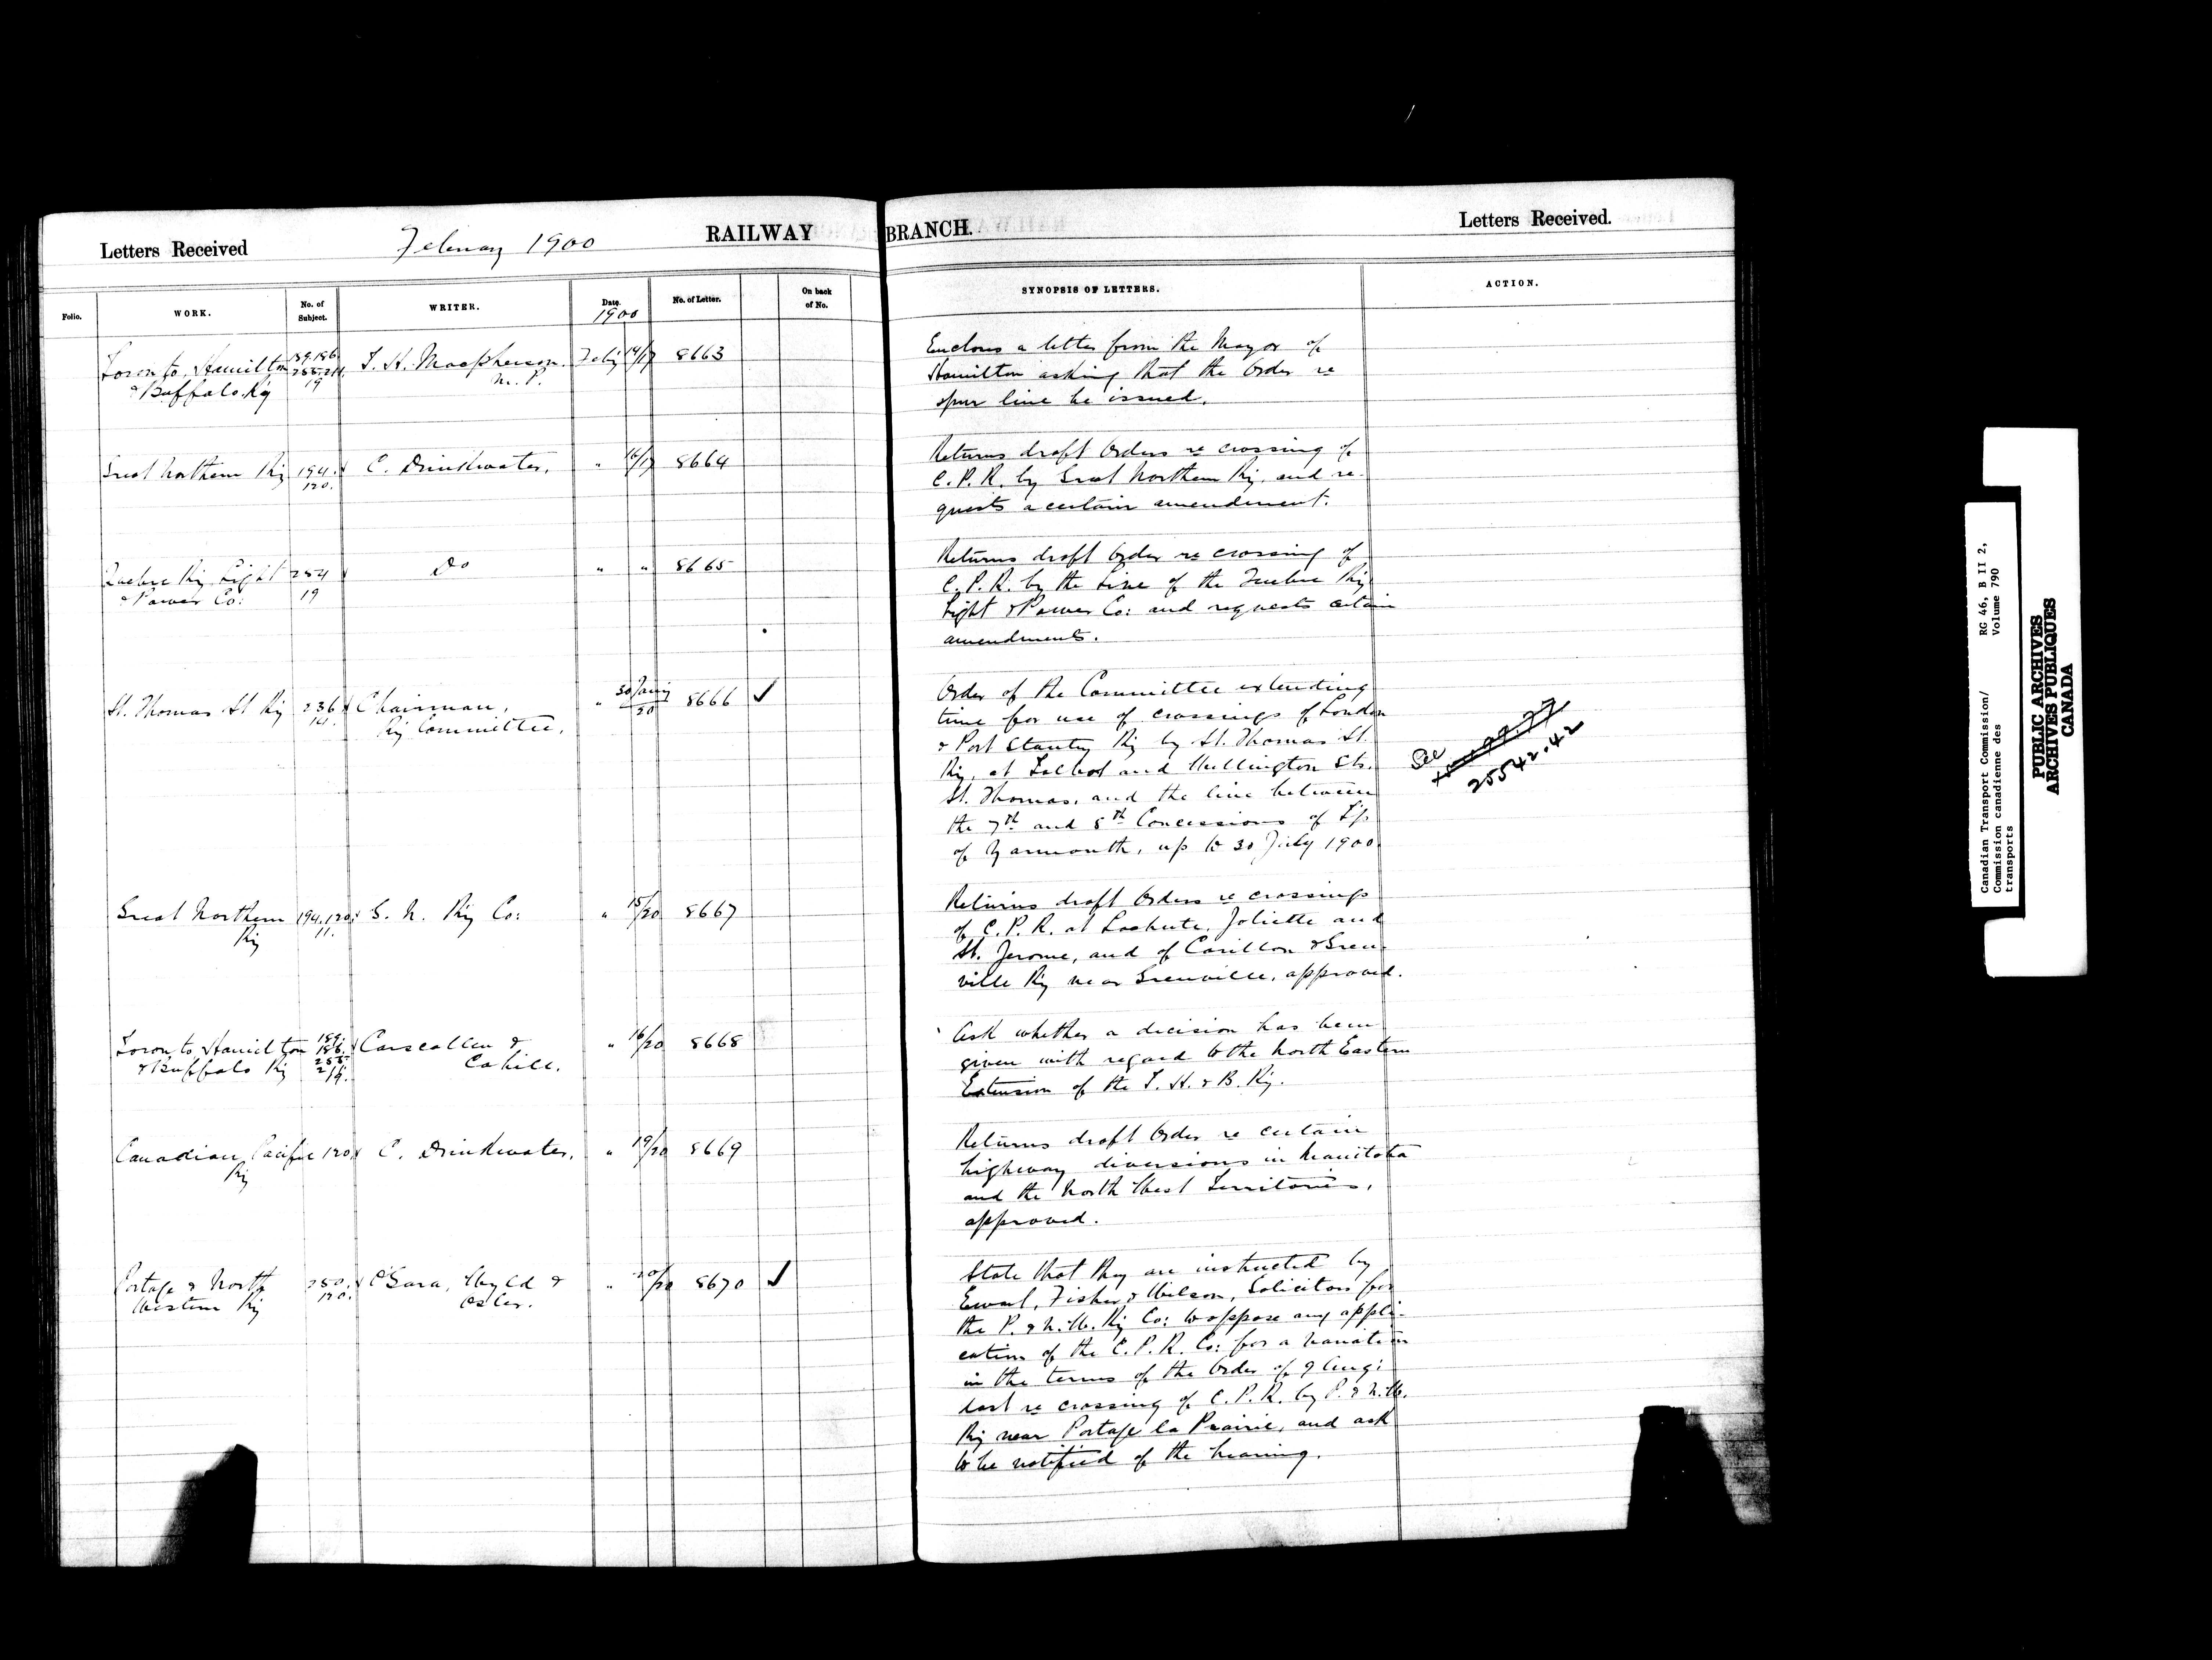 Letters Received
February 1900
RAILWAY BRANCH.
Letters Received.
Folio.
WORK.
No. of Subject.
WRITER.
Date.
1900
No. of Letter.
On back of No.
SYNOPSIS OF LETTERS.
ACTION.
Toronto, Hamilton
& Buffalo Ry
19
T. H. Macpherson.
M. P.
Feby 14/17
8663
Encloses a letter from the Mayor of
Hamilton asking that the Order re
spur line be issued.
Great Northern Ry
194.
120.
C. Drinkwater.
" 16/17
8664
Returns draft Orders re crossing of
C. P. R. by Great Northern Ry. and re-
quests a certain amendment.
Quebec Ry Light
& Power Co:
254
19
Do
" "
8665
Returns draft Order re crossing of
C. P. R. by the Line of the Quebec Ry
Light & Power Co: and requests certain
amendments.
St. Thomas St Ry
236
141.
Chairman,
Ry Committee.
" 30 Jany/20
8666 ✓
Order of the Committee extending
time for use of crossings of London
& Port Stanley Ry by St. Thomas St.
Ry. at Talbot and Wellington Sts.
St. Thomas, and the line between
the 7th and 8th Concessions of Tp.
of Yarmouth, up to 30 July 1900.
See
25542.42
Great Northern
Ry
194.120.
11.
G. N. Ry Co:
" 15/20
8667
Returns draft Orders re crossings
of C. P. R. at Lachute, Joliette and
St. Jerome, and of Carillon & Gren-
ville Ry near Grenville, approved.
Toronto Hamilton
& Buffalo Ry
189.
186.
255.
211.
19.
Carscallen &
Cahill.
" 16/20
8668
Ask whether a decision has been
given with regard to the North Eastern
Extension of the T. H. & B. Ry.
Canadian Pacific
Ry
120
C. Drinkwater.
" 19/20
8669
Returns draft Order re certain
highway diversions in Manitoba
and the North West Territories,
approved.
Portage & North
Western Ry
250.
120.
O'Gara, Wyld &
Osler.
" 20/20
8670 ✓
State that they are instructed by
Ewart, Fisher & Wilson, Solicitors for
the P. & N. W. Ry Co: to oppose any appli-
cation of the C. P. R. Co: for a variation
in the terms of the Order of 9 Aug:
last re crossing of C. P. R. by P. & N. W.
Ry near Portage la Prairie, and ask
to be notified of the hearing.
Canadian Transport Commission/ RG 46, B II 2,
Commission canadienne des Volume 790
transports
PUBLIC ARCHIVES
ARCHIVES PUBLIQUES
CANADA